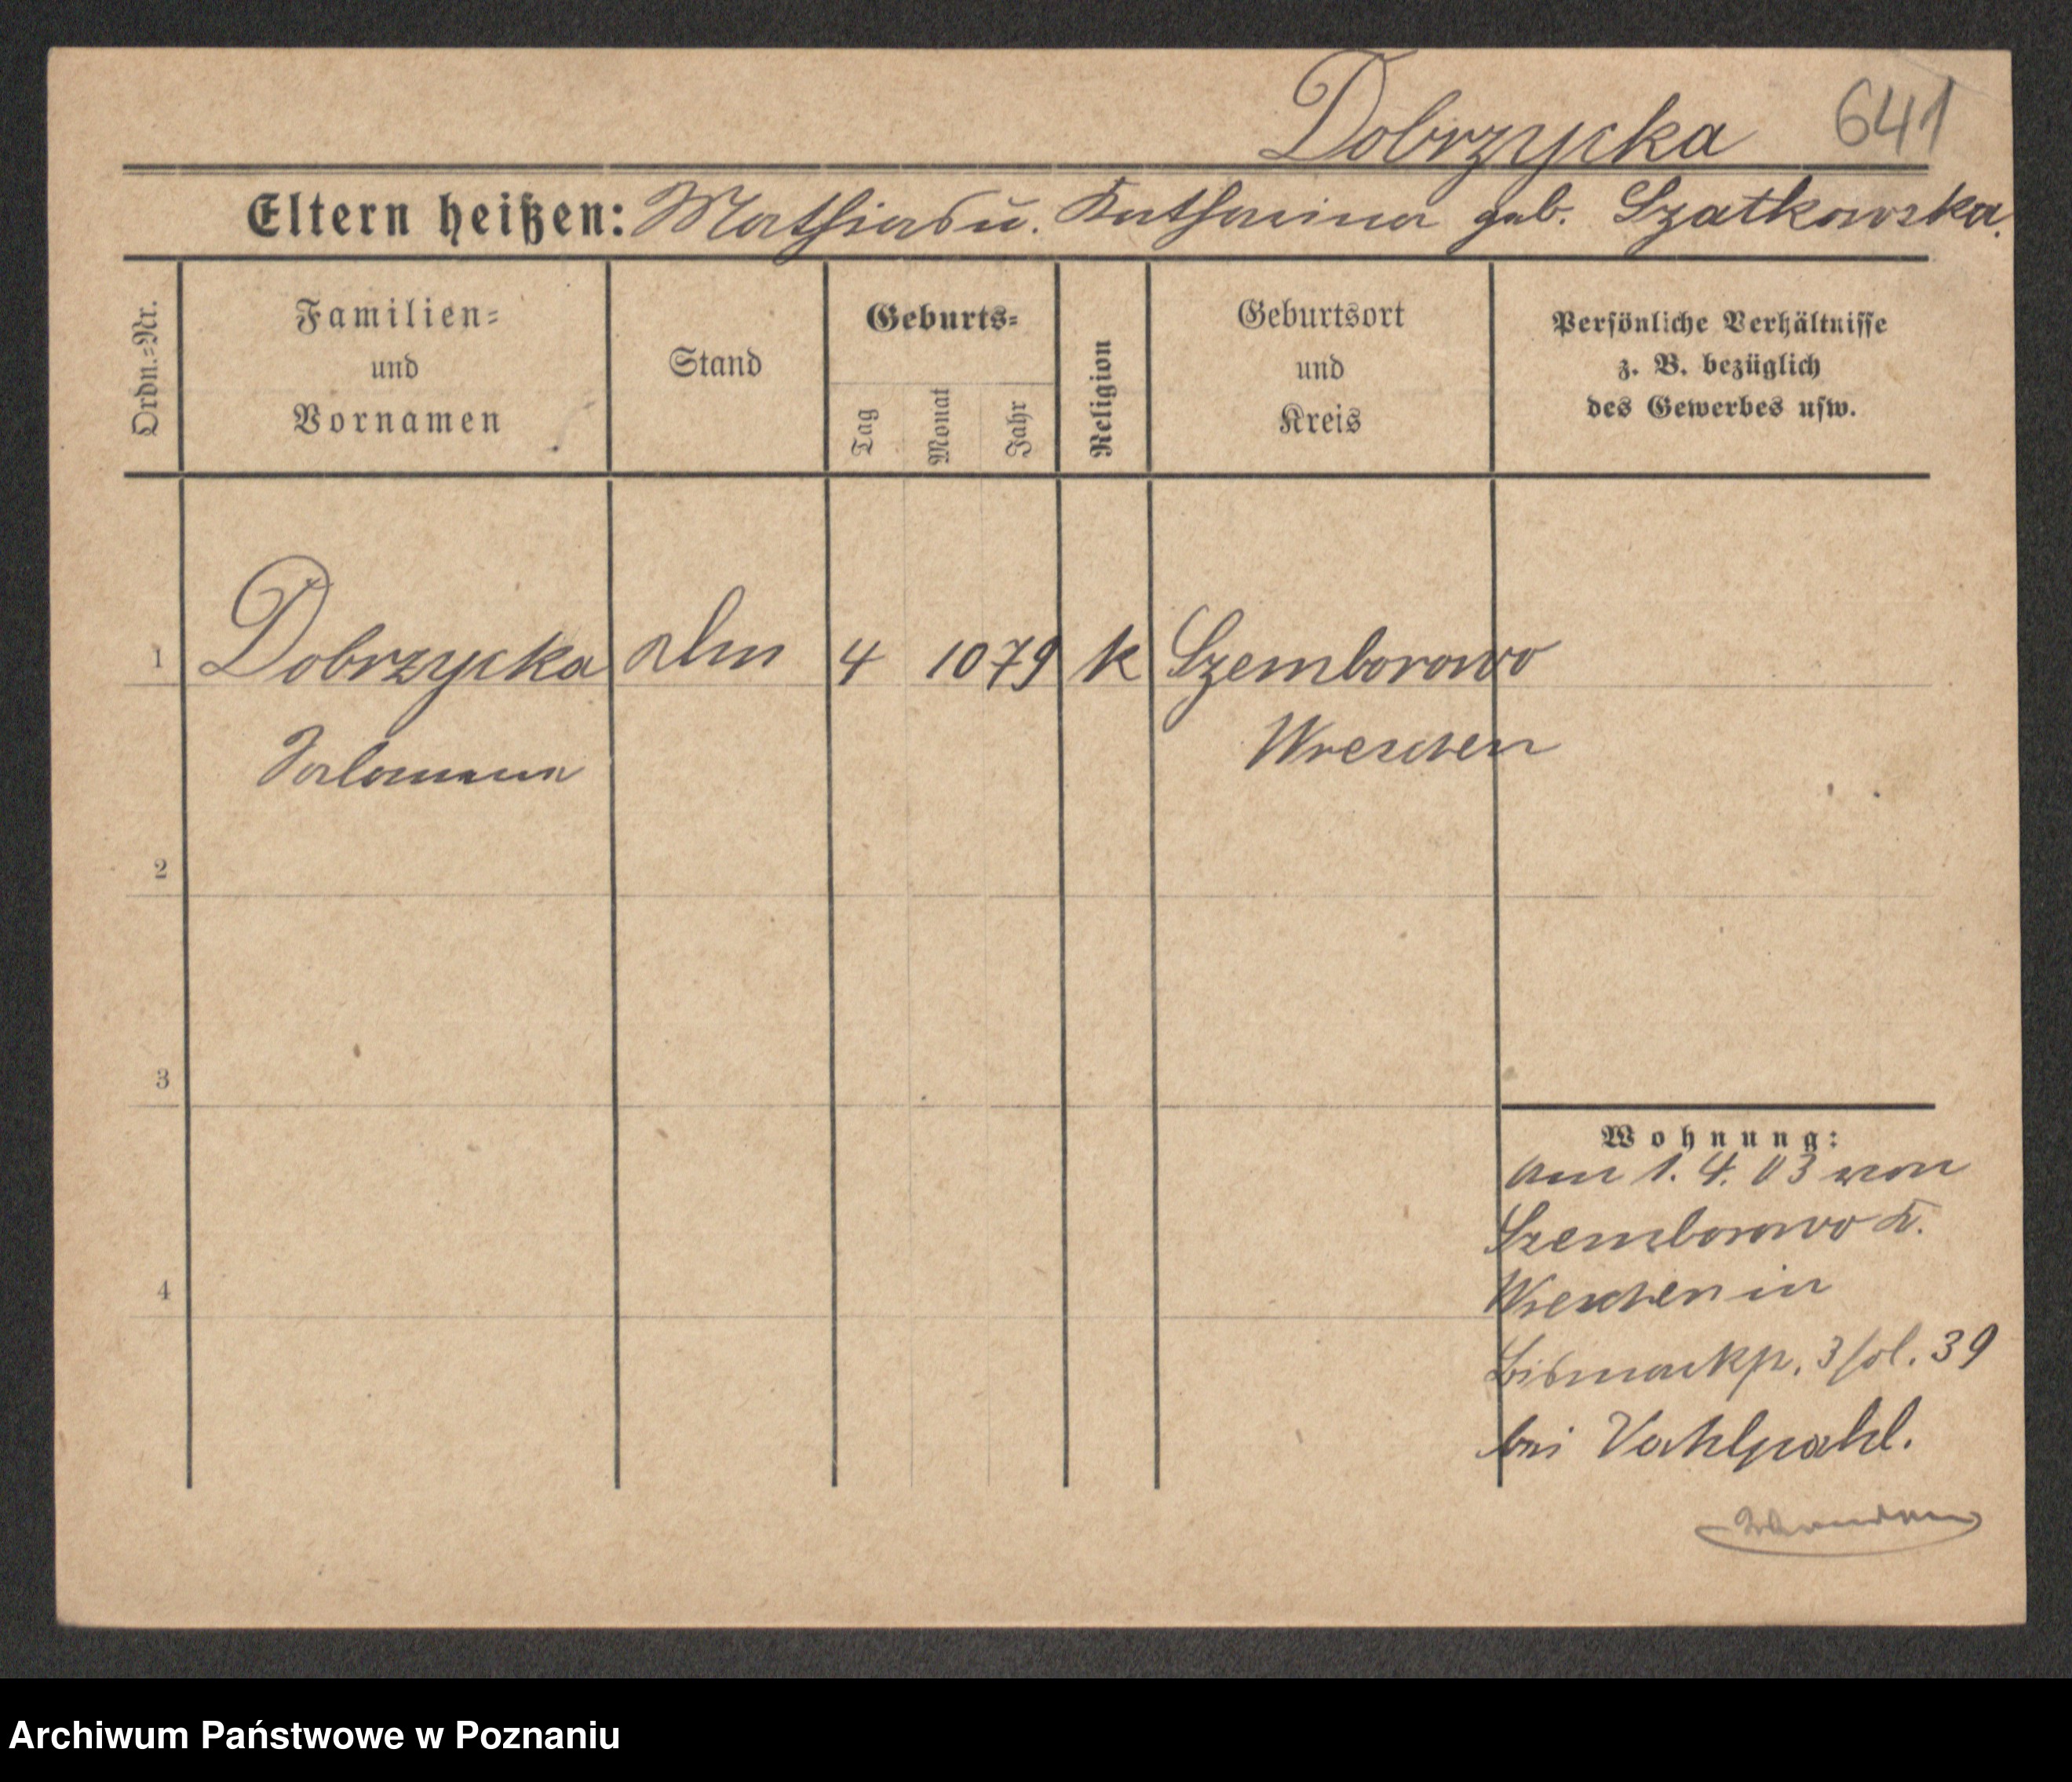 Dobrzycka 641
Eltern heißen: Mathias u. Katharina geb. Szatkowska.
Ordn.=Nr.
Familien=
und
Vornamen
Stand
Geburts=
Tag
Monat
Jahr
Religion
Geburtsort
und
Kreis
Persönliche Verhältnisse
z. B. bezüglich
des Gewerbes usw.
1 Dobrzycka 4 10 79 k Szemborowo
Wreschen
2
3
4
Wohnung:
am 1. 4. 03 von
Szemborowo K.
Wreschen in
Bismarckp. 3 fol. 39
bei Vahlpahl.
Archiwum Państwowe w Poznaniu